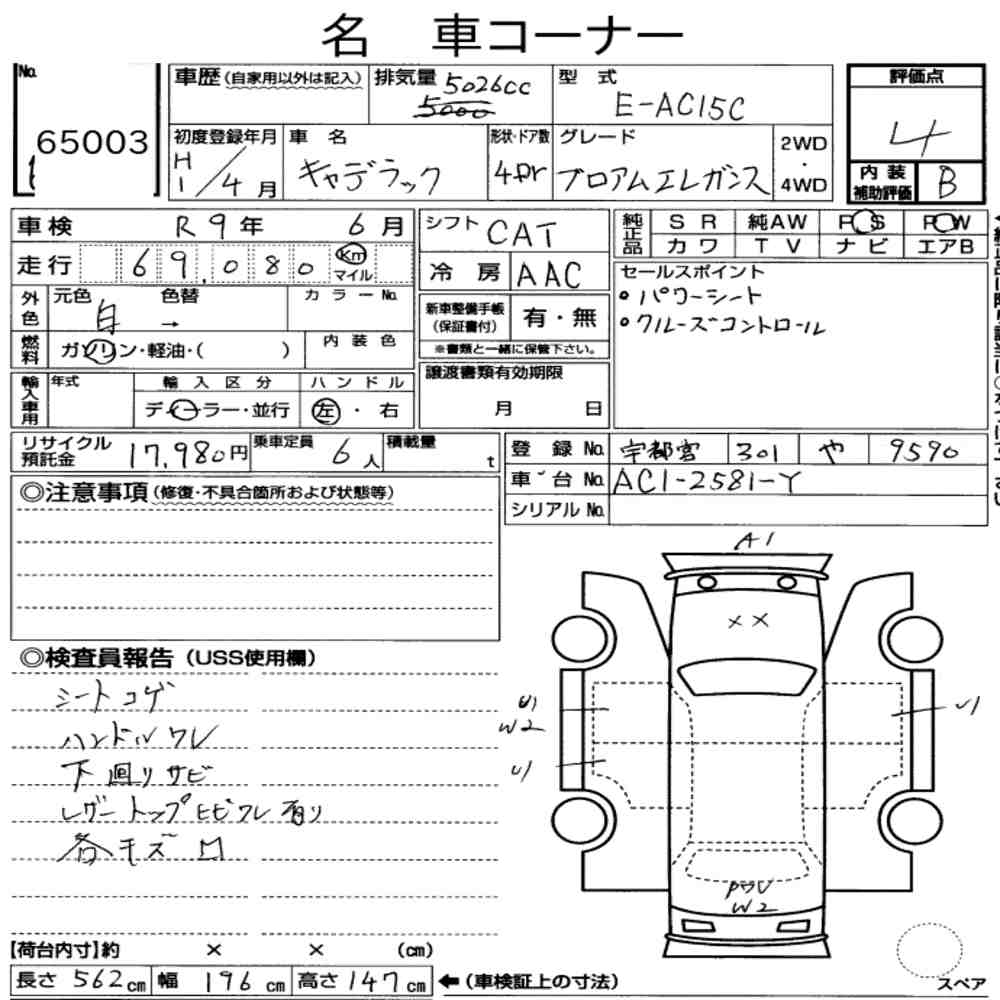 名 車コーナー
No. 65003
車歴(自家用以外は記入)
排気量 5026cc 5000
型 式 E-AC15C
評価点 4
初度登録年月 H1/4月
車 名 キャデラック
形状・ドア数 4Dr
グレード ブロアムエレガンス
2WD・4WD
内装補助評価 B
車検 R9年 6月
シフト CAT
純正品 SR 純AW PS PW
カワ TV ナビ エアB
走行 69,080 Km マイル
冷房 AAC
セールスポイント
・パワーシート
・クルーズコントロール
外色 元色 白 → 色替 カラーNo.
新車整備手帳(保証書付) 有・無
※書類と一緒に保管下さい。
燃料 ガソリン・軽油・( ) 内装色
譲渡書類有効期限 月 日
輸入車用 年式 輸入区分 ハンドル
ディーラー・並行 左・右
リサイクル預託金 17,980円 乗車定員 6人 積載量 t
登録No. 宇都宮 301 や 9590
車台No. AC1-2581-Y
シリアルNo.
◎注意事項(修復・不具合箇所および状態等)
◎検査員報告(USS使用欄)
シートコゲ
ハンドルワレ
下回りサビ
レザートップヒビワレ有り
各キズ
A1
××
U1
W2
U1
U1
W2
【荷台内寸】約 × × (cm)
長さ 562cm 幅 196cm 高さ 147cm ←(車検証上の寸法)
スペア